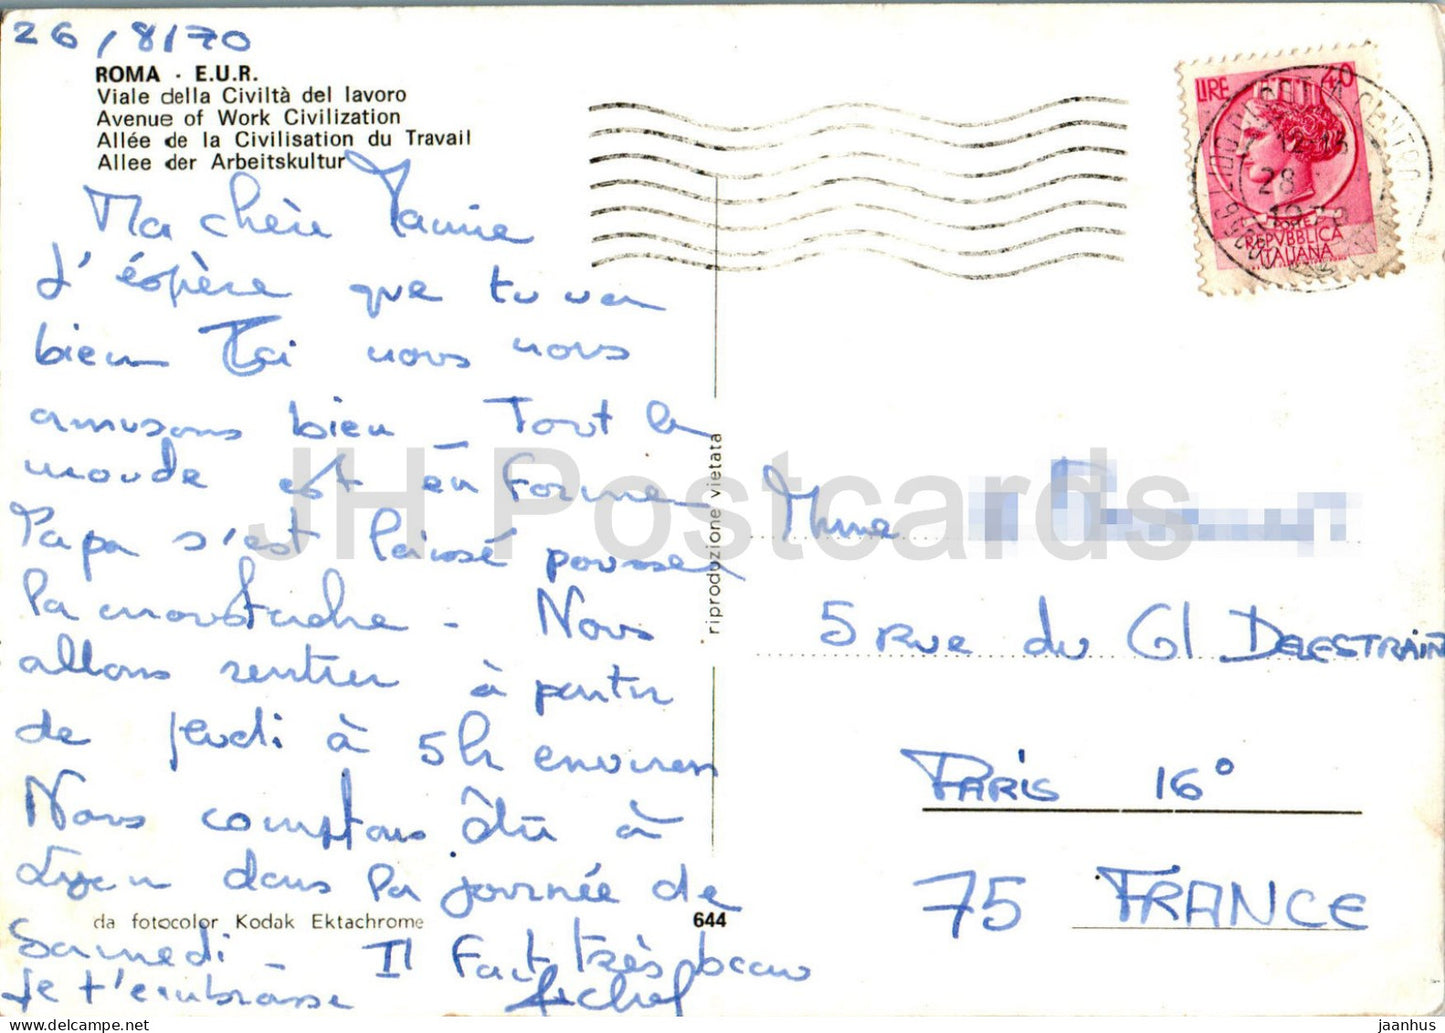 26/8/70
ROMA - E.U.R.
Viale della Civiltà del lavoro
Avenue of Work Civilization
Allée de la Civilisation du Travail
Allee der Arbeitskultur
Ma chère
J'éspère que tu vas
bien Ici nous nous
amusons bien - Tout le
monde est en forme
Papa s'est laissé pousser
la moustache - Nous
allons rentrer à partir
de jeudi à 5h environ
Nous comptons être à
Lyon dans la journée de
Samedi - Il fait très beau
Je t'embrasse Michel
da fotocolor Kodak Ektachrome
644
riproduzione vietata
LIRE 40
REPVBBLICA
ITALIANA
28
1970
Mme
5 RUE du Gl DELESTRAIN
PARIS 16°
75 FRANCE
JH Postcards
jaanhus